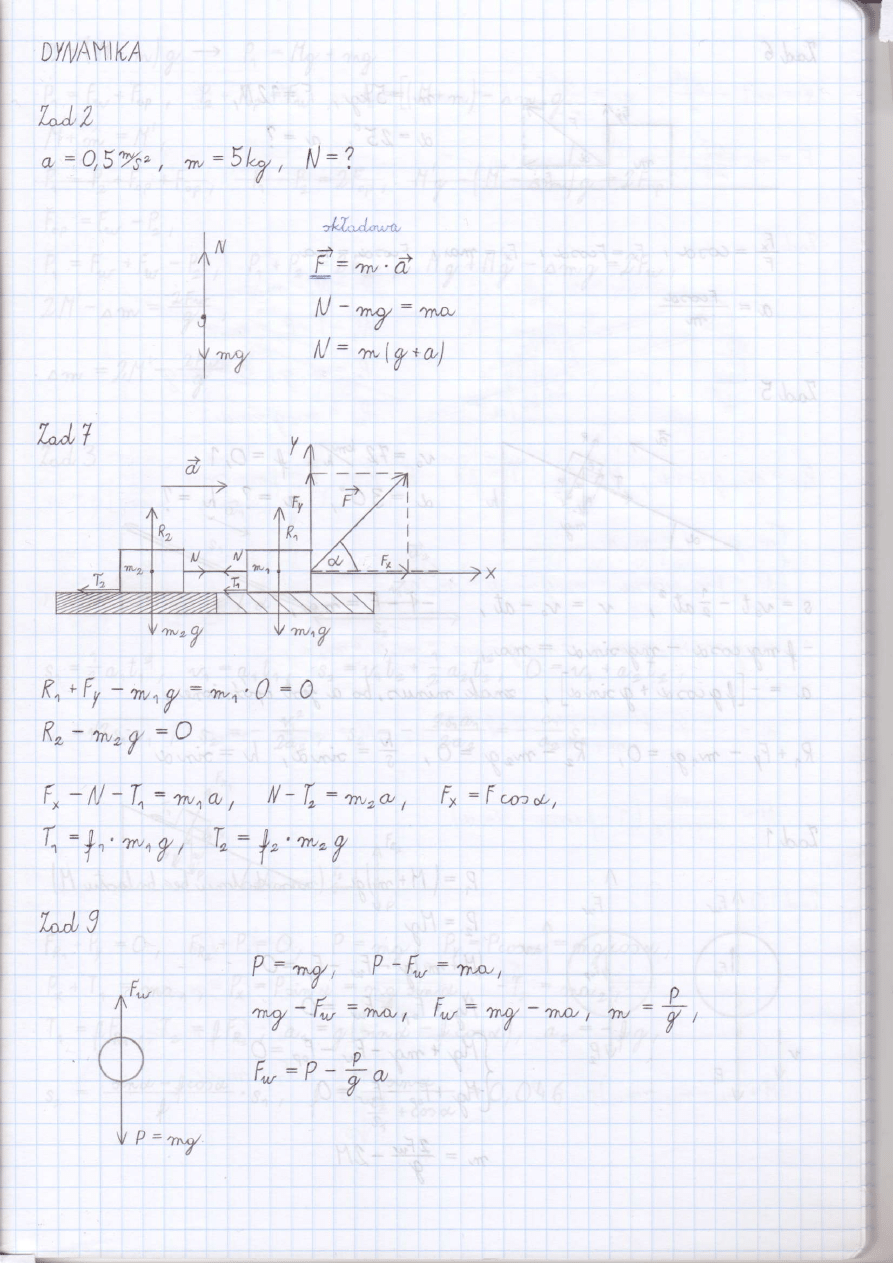 DYNAMIKA
Zad 2
a = 0,5 m/s², m = 5kg, N = ?
N
mg
składowa
F⃗ = m · a⃗
N - mg = ma
N = m(g+a)
Zad 7
a⃗
Y
R₂
Fy
R₁
F⃗
m₂
N
N
m₁
α
Fx
X
T₂
T₁
m₂g
m₁g
R₁ + Fy - m₁g = m₁·0 = 0
R₂ - m₂g = 0
Fx - N - T₁ = m₁a, N - T₂ = m₂a, Fx = F cosα,
T₁ = f₁·m₁g, T₂ = f₂·m₂g
Zad 9
Fw
P = mg
P = mg, P - Fw = ma,
mg - Fw = ma, Fw = mg - ma, m = P/g,
Fw = P - P/g a